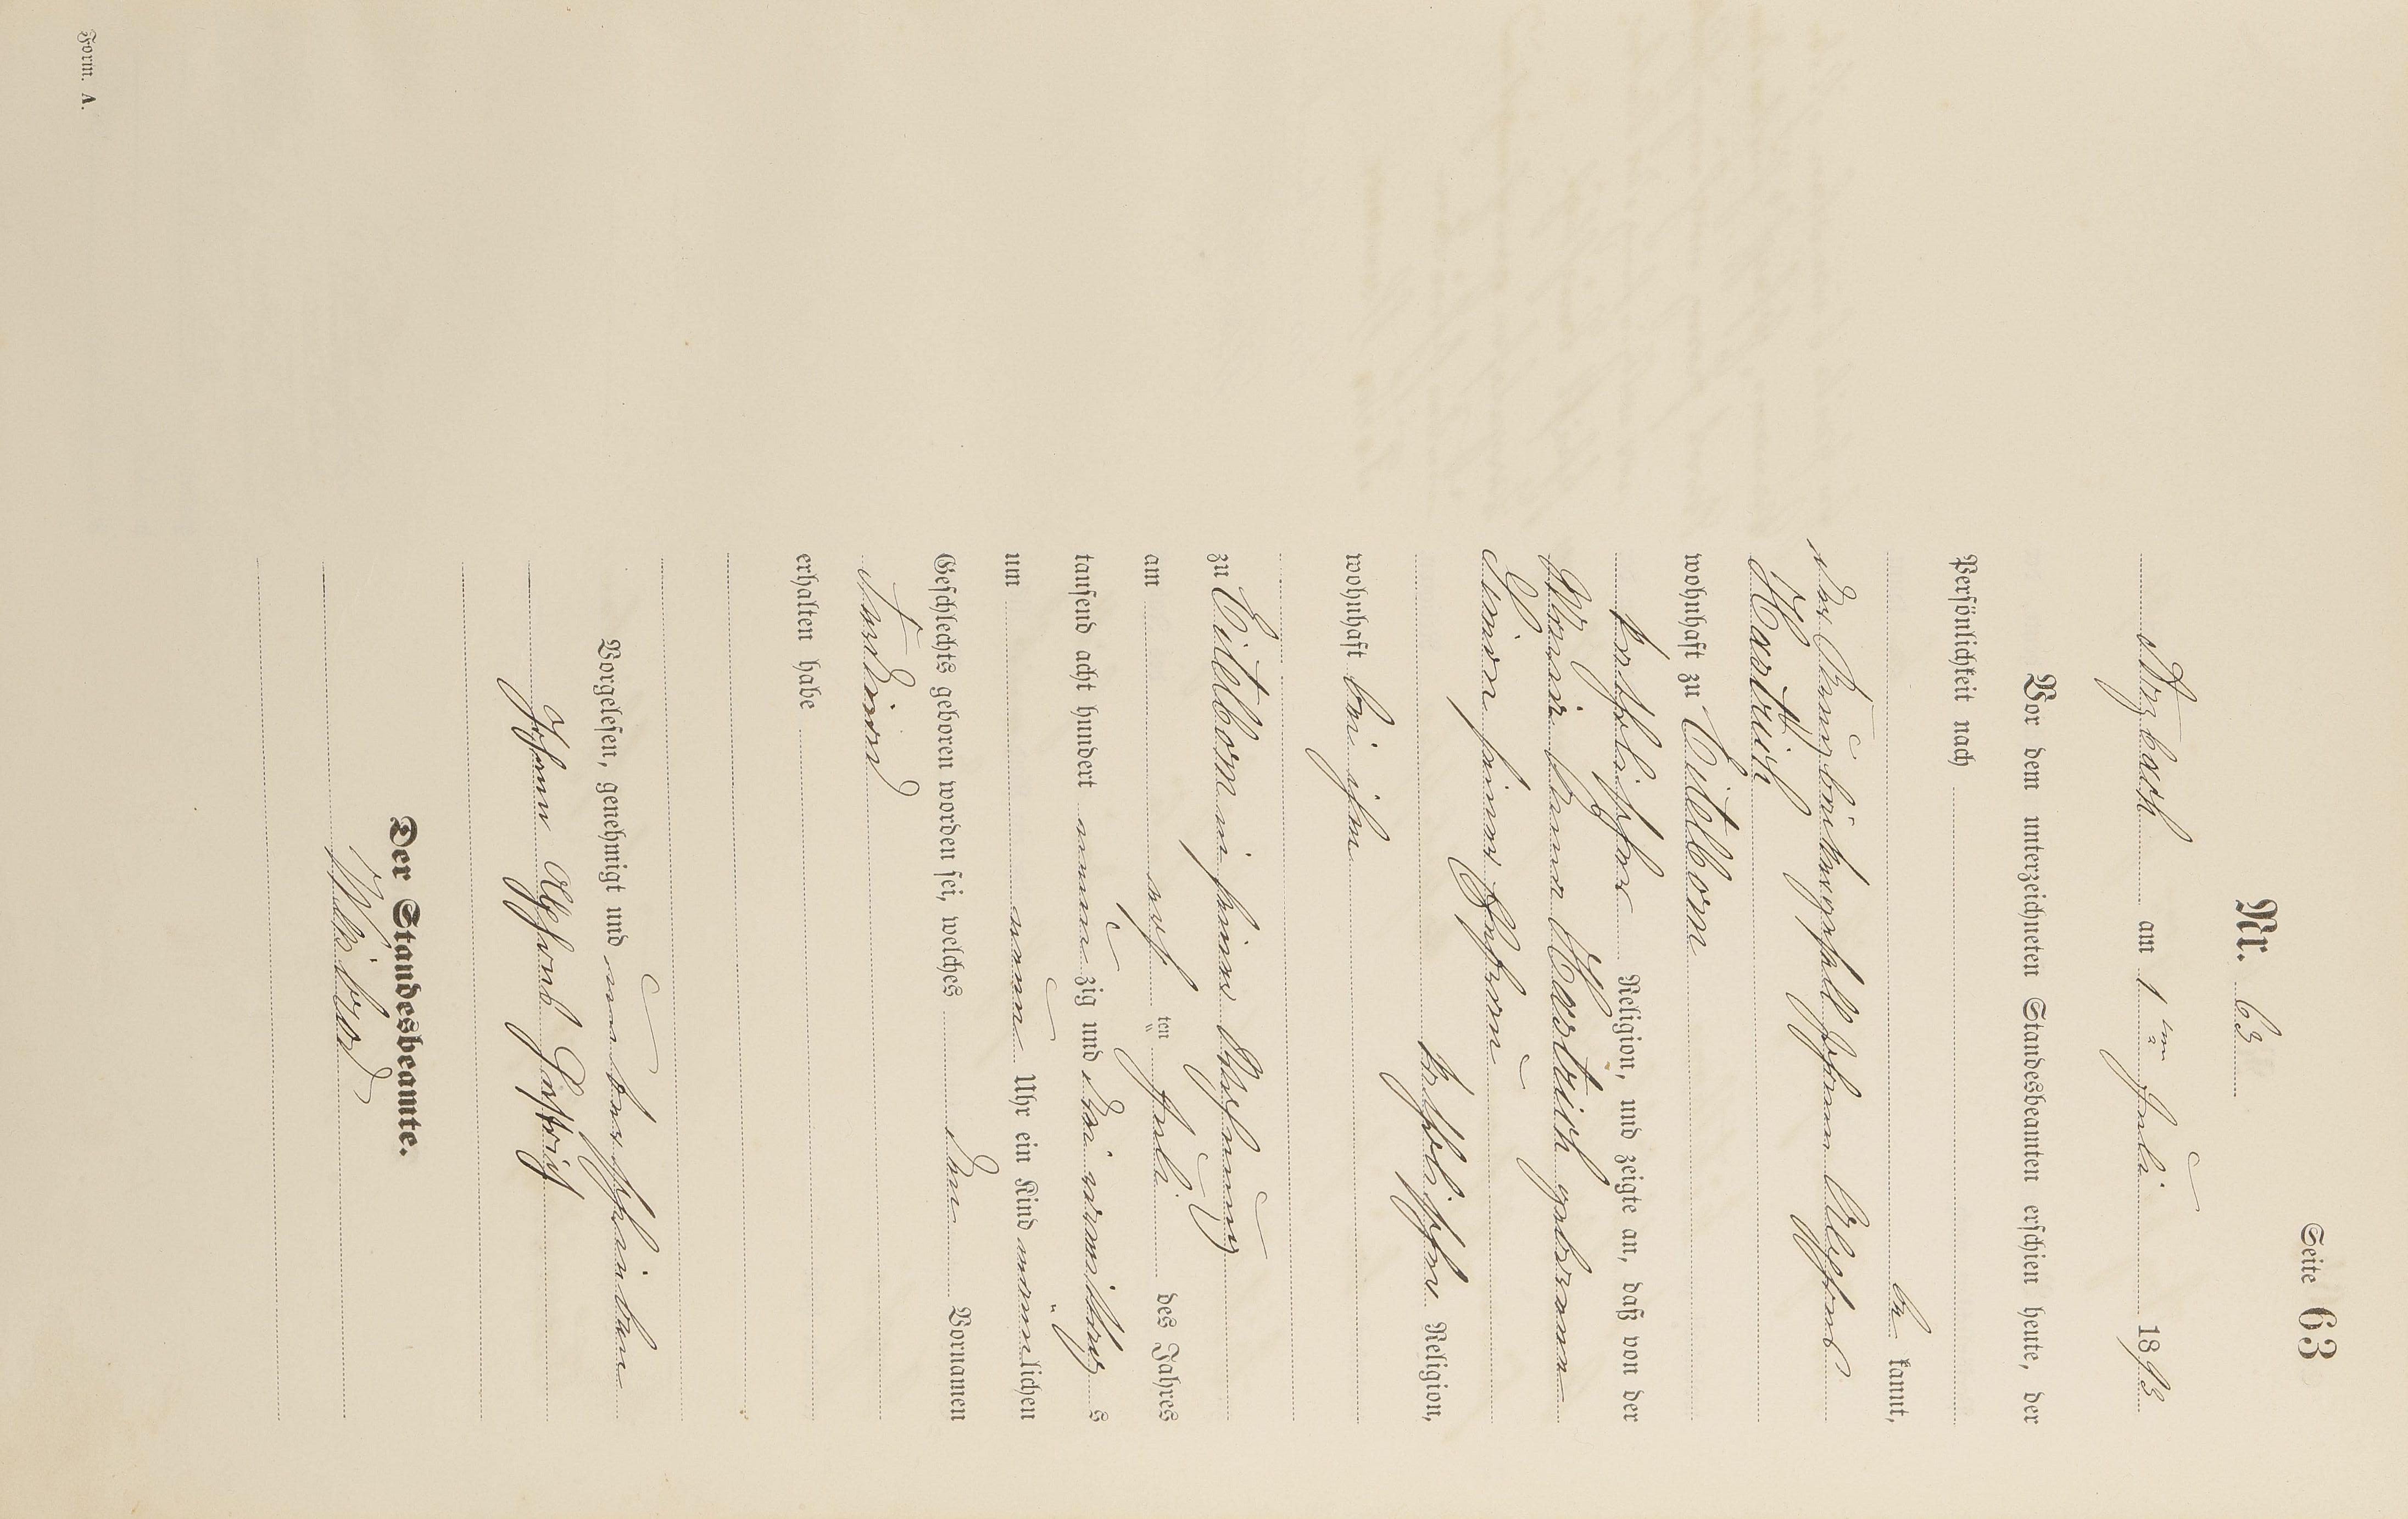 Seite 63
Nr. 63
Arzbach am 1ten Juli 1893
Vor dem unterzeichneten Standesbeamten erschien heute, der
Persönlichkeit nach
be kannt,
der Johann
Hartrich
wohnhaft zu Eitelborn
katholischer Religion, und zeigte an, daß von der
Maria Anna Hartrich geborenen
Simon seiner Ehefrau
katholischer Religion,
wohnhaft bei ihm
zu Eitelborn in seiner Wohnung
am ten Juli des Jahres
tausend acht hundert neun zig und drei Vormittag s
um neun Uhr ein Kind männlichen
Geschlechts geboren worden sei, welches den Vornamen
erhalten habe
Vorgelesen, genehmigt und unterschrieben
Johann
Der Standesbeamte.
Form. A.